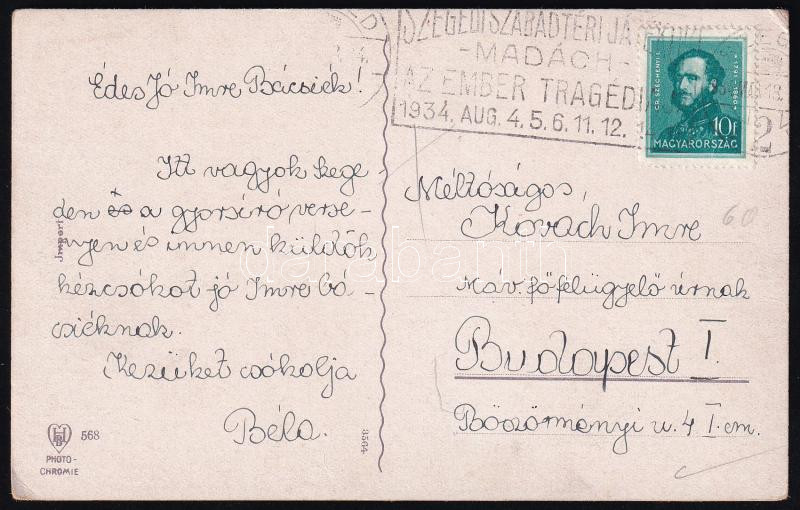 SZEGEDI SZABADTÉRI
-MADÁCH-
AZ EMBER TRAGÉDI
1934. AUG. 4.5.6.11.12.
GR. SZÉCHENYI I.
1791-1860
10f
MAGYARORSZÁG
Édes Jó Imre Bácsiék!
Itt vagyok Szege-
den és a gyorsíró verse-
nyen és innen küldök
kézcsókot jó Imre bá-
csiéknak.
Kezüket csókolja
Béla.
Méltóságos,
Kovach Imre
Máv. főfelügyelő úrnak
Budapest I.
Böszörményi u. 4 I. em.
60
Import
3564
HB
568
PHOTO-
CHROMIE
darabanth